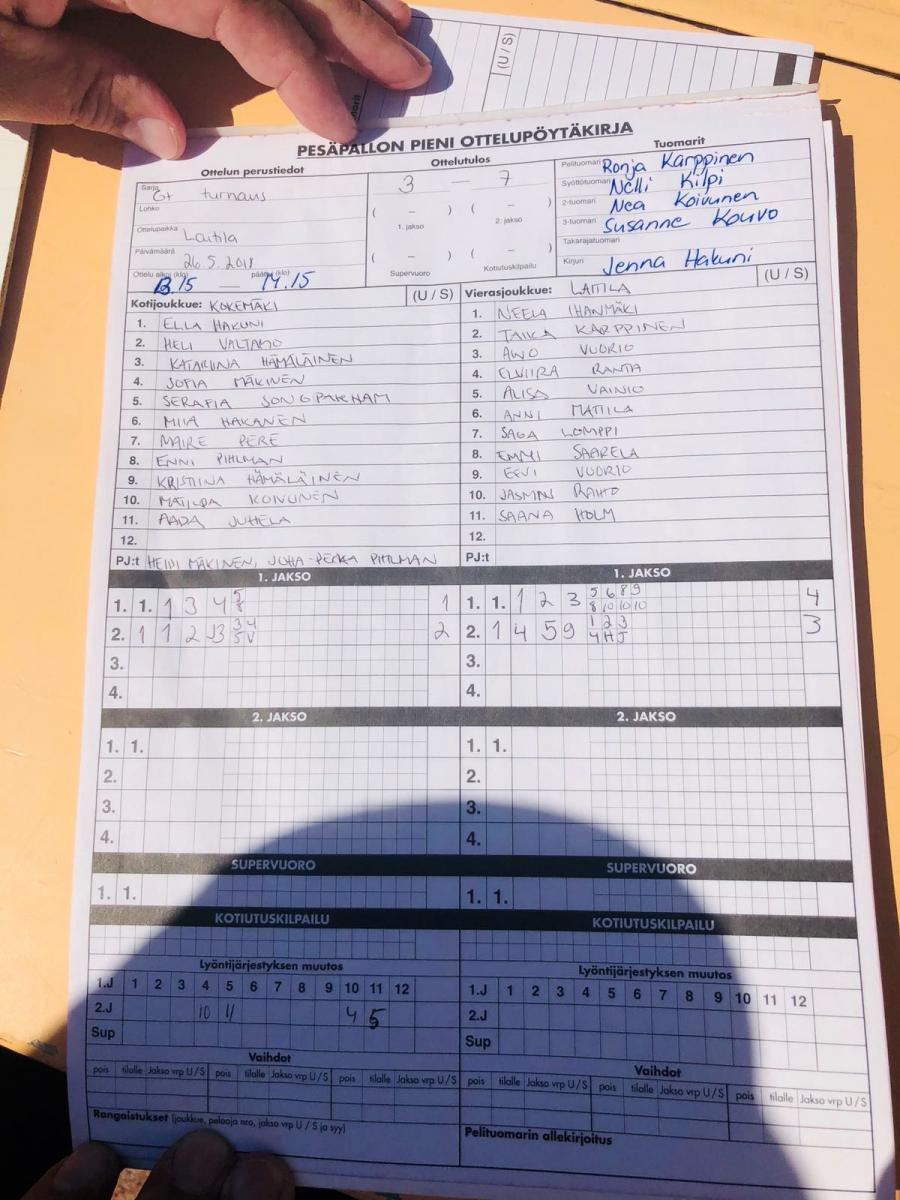 (U / S)
PESÄPALLON PIENI OTTELUPÖYTÄKIRJA
Ottelun perustiedot
Ottelutulos
Tuomarit
Sarja
G+ turnaus
Lohko
Ottelupaikka Laitila
Päivämäärä 26.5.2018
Ottelu alkoi (klo) 13.15 — päättyi (klo) 14.15
3 — 7
( – ) ( – )
1. jakso 2. jakso
( – ) ( – )
Supervuoro Kotiutuskilpailu
Pelituomari Ronja Karppinen
Syöttötuomari Nelli Kilpi
2-tuomari Nea Koivunen
3-tuomari Susanne Kouvo
Takarajatuomari
Kirjuri Jenna Hakuni
Kotijoukkue: KOKEMÄKI (U / S)
1. ELLA HAKUNI
2. HELI VALTAMO
3. KATARIINA HÄMÄLÄINEN
4. SOFIA MÄKINEN
5. SERAFIA SONGPAKHAM
6. MIIA HAKANEN
7. MAIRE PERE
8. ENNI PIHLMAN
9. KRISTIINA HÄMÄLÄINEN
10. MATILDA KOIVUNEN
11. AADA JUHELA
12.
PJ:t HEIDI MÄKINEN, JUHA-PEKKA PIHLMAN
Vierasjoukkue: LAITILA (U / S)
1. NEELA IHANMÄKI
2. TAIKA KARPPINEN
3. AINO VUORIO
4. ELVIIRA RANTA
5. ALISA VAINIO
6. ANNI MATTILA
7. SAGA LOMPPI
8. EMMI SAARELA
9. EEVI VUORIO
10. JASMIN RAIHO
11. SAANA HOLM
12.
PJ:t
1. JAKSO
1. 1. 1 3 4 5 8 1
2. 1 1 2 J3 3 4 5 V 2
3.
4.
1. JAKSO
1. 1. 1 2 3 5 6 8 9 8 10 10 10 4
2. 1 4 5 9 1 2 3 4 H J 3
3.
4.
2. JAKSO
1. 1.
2.
3.
4.
2. JAKSO
1. 1.
2.
3.
4.
SUPERVUORO
1. 1.
SUPERVUORO
1. 1.
KOTIUTUSKILPAILU
KOTIUTUSKILPAILU
Lyöntijärjestyksen muutos
1.J 1 2 3 4 5 6 7 8 9 10 11 12
2.J 10 11 4 5
Sup
Lyöntijärjestyksen muutos
1.J 1 2 3 4 5 6 7 8 9 10 11 12
2.J
Sup
Vaihdot
pois tilalle Jakso vrp U / S pois tilalle Jakso vrp U / S pois tilalle Jakso vrp U / S
Vaihdot
pois tilalle Jakso vrp U / S pois tilalle Jakso vrp U / S pois tilalle Jakso vrp U / S
Rangaistukset (joukkue, pelaaja nro, jakso vrp U / S ja syy)
Pelituomarin allekirjoitus